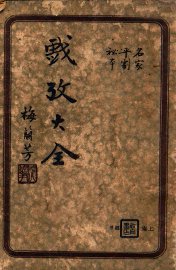 名家
平劇
秘本
戲考大全
梅蘭芳
上海